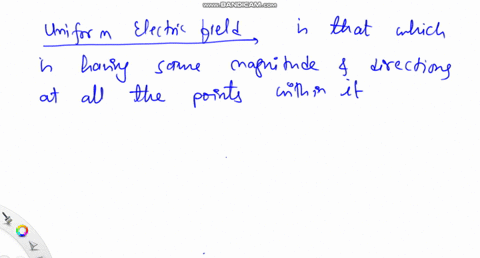 www.BANDICAM.com
Uniform Electric field is that which
is having same magnitude & directions
at all the points within it